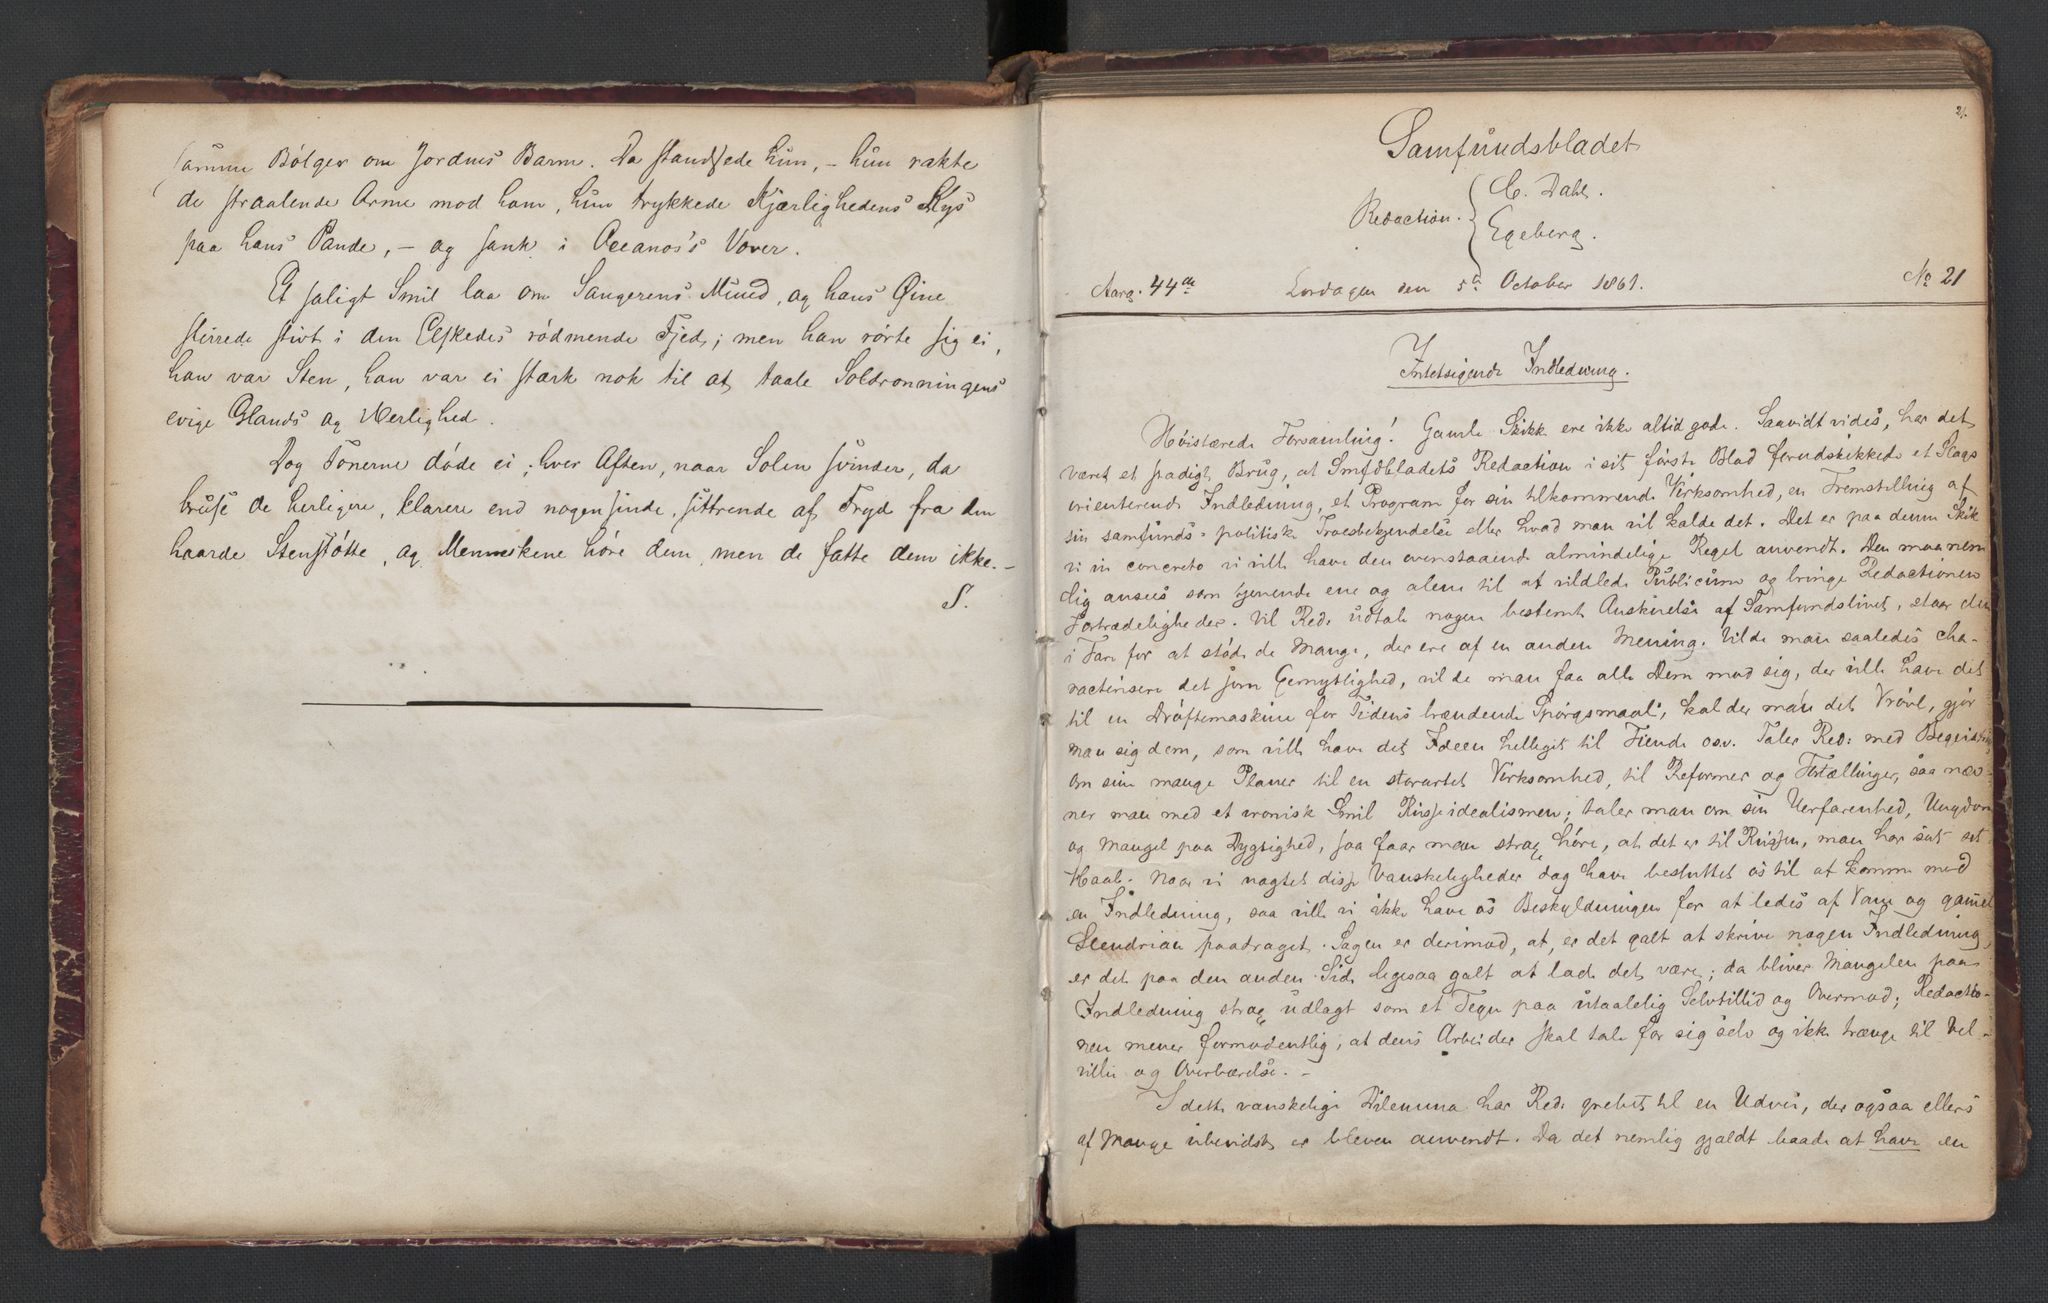 samme Bølger om Jordens Barm. Da standsede hun, – hun rakte
de straalende Arme mod ham, hun trykkede Kjærlighedens Kys
paa hans Pande, – og sank i Oceanos's Vover.
Et saligt Smil laa om Sangerens Mund, og hans Øine
stirrede stivt i den Elskedes rødmende Fjed; men han rørte sig ei,
han var Sten, han var ei stærk nok til at taale Soldronningens
evige Glands og Herlighed.
Dog Tonerne døde ei; hver Aften, naar Solen svinder, da
bruse de herligere, klarere end nogensinde, sittrende af Fryd fra den
haarde Stenstøtte, og Menneskene høre dem, men de fatte dem ikke. –
S.
21.
Samfundsbladet
Redaction. C. Dahl.
Egeberg.
Aarg. 44de Lørdagen den 5te October 1861. No 21
Intetsigende Indledning.
Høistærede Forsamling! Gamle Skikk ere ikke altid gode. Saavidt vides, har det
været et stadigt Brug, at Smfdbladets Redaction i sit første Blad forudskikkede et Slags
orienterende Indledning, et Program for sin tilkommende Virksomhed, en Fremstilling af
sin samfunds-politiske Troesbekjendelse eller hvad man vil kalde det. Det er paa denne Skik
vi in concreto ville have den ovenstaaende almindelige Regel anvendt. Den maa nem
lig ansees som tjenende ene og alene til at vildlede Publicum og bringe Redactionen
Fortrædeligheder. Vil Red: udtale nogen bestemt Anskuelse af Samfundslivet, staar den
i Fare for at støde de Mange, der ere af en anden Mening. Vilde man saaledes cha-
racterisere det som Gemytlighed, vilde man faa alle Dem mod sig, der ville have det
til en Drøftemaskine for Tidens brændende Spørgsmaal, kalder man det Vrøvl, gjør
man sig dem, som ville have det Ideen helliget til Fiende osv. Taler Red: med Begeistring
om sine mange Planer til en storartet Virksomhed, til Reformer og Fortællinger, saa næv-
ner man med et ironisk Smil Russeidealismen; taler man om sin Uerfarenhed, Ungdom
og Mangel paa Dygtighed, saa faar man strax høre, at det er til Russen, man har sat sit
Haab. Naar vi uagtet disse Vanskeligheder dog have besluttet os til at komme med
en Indledning, saa ville vi ikke have os Beskyldningen for at ledes af Vane og gammel
Slendrian paadraget. Sagen er derimod, at, er det galt at skrive nogen Indledning,
er det paa den anden Side ligesaa galt at lade det være; da bliver Mangelen paa
Indledning strax udlagt som et Tegn paa utaalelig Selvtillid og Overmod; Redactio-
nen mener formodentlig, at dens Arbeider skal tale for sig selv og ikke trænge til Vel-
villie og Overbærelse. –
I dette vanskelige Dilemma har Red: grebet til en Udvei, der ogsaa ellers
af Mange ubevidst er bleven anvendt. Da det nemlig gjaldt baade at have en